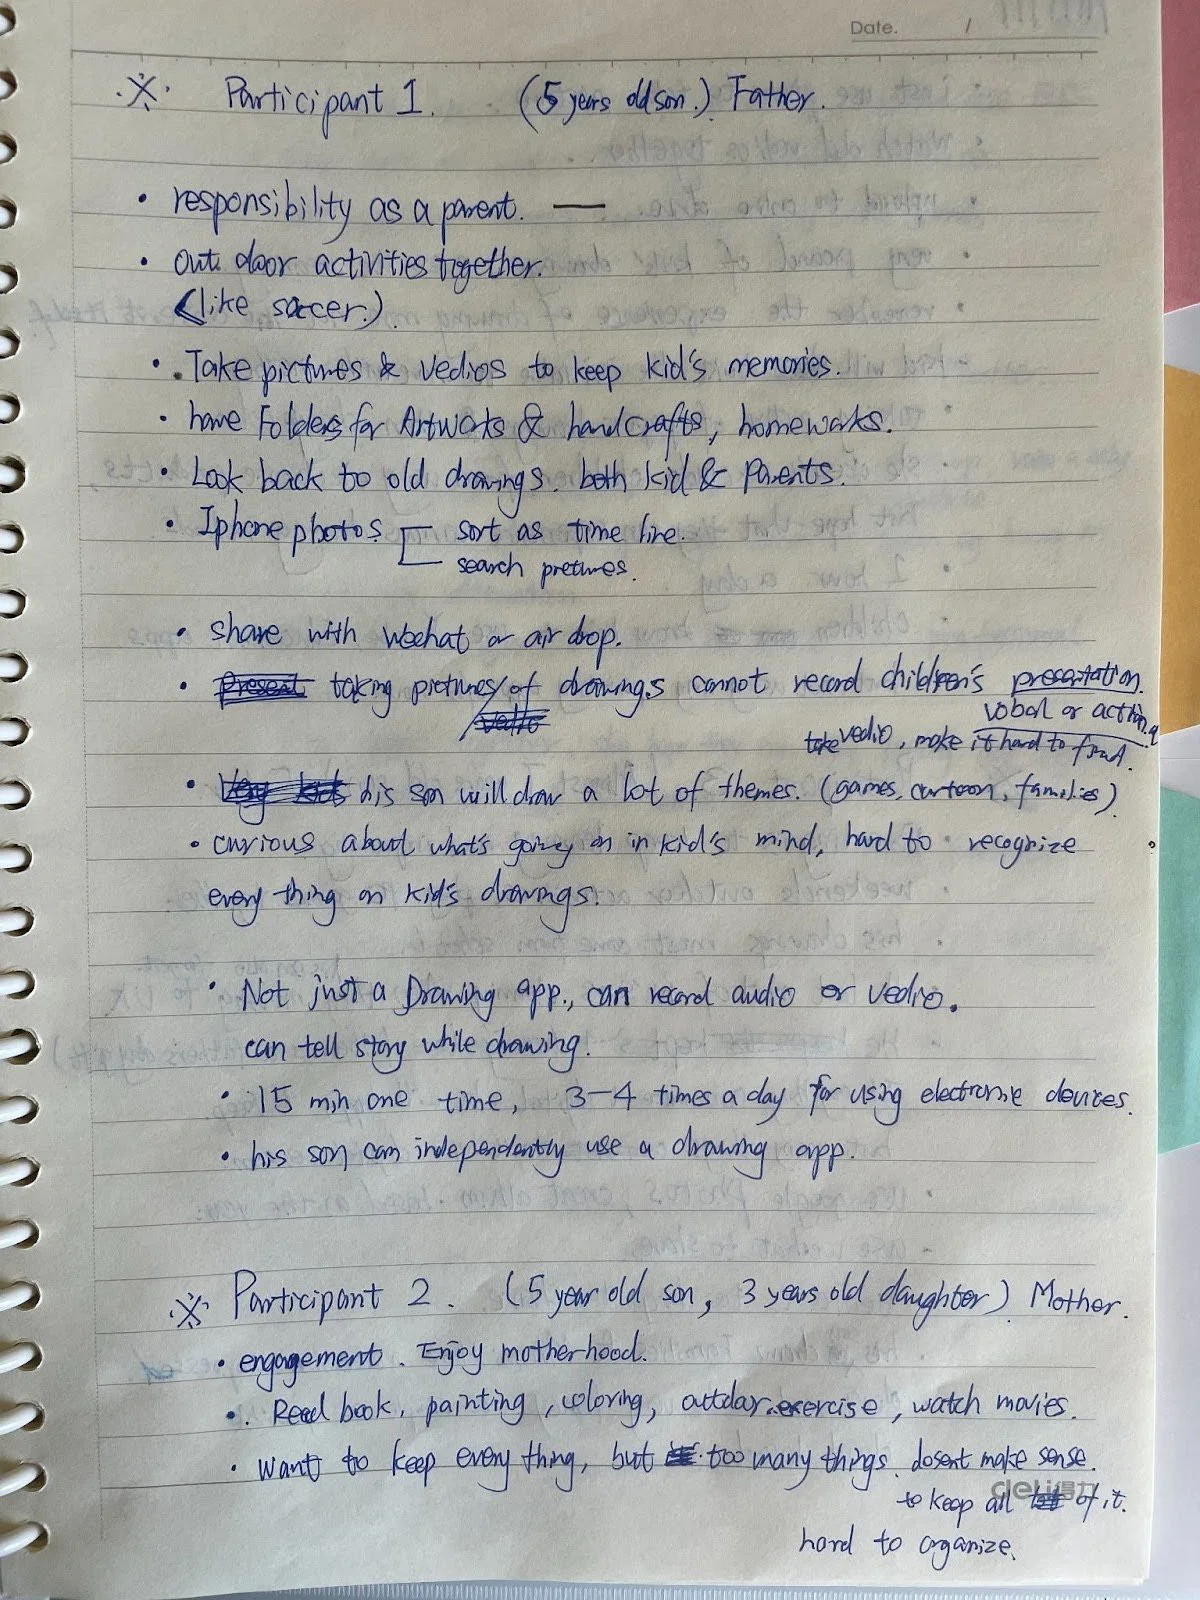 Date. /
※ Participant 1. (5 years old son.) Father.
• responsibility as a parent. —
• out door activities together.
(like soccer.)
• Take pictures & vedios to keep kid's memories.
• have Folders for Artworks & handcrafts, homeworks.
• Look back to old drawings. both kid & Parents.
• Iphone photos sort as time line.
search pictures.
• share with wechat or air drop.
• taking pictures/of drawings cannot record children's presentation.
vobal or action.
take vedio, make it hard to find.
• his son will draw a lot of themes. (games, cartoon, families)
• curious about what's going on in kid's mind, hard to recognize
every thing on kid's drawings.
• Not just a Drawing app., can record audio or vedio.
can tell story while drawing.
• 15 min one time, 3-4 times a day for using electronic devices.
• his son can independently use a drawing app.
※ Participant 2. (5 year old son, 3 years old daughter) Mother.
• engagement. Enjoy motherhood.
• Read book, painting, coloring, outdoor exercise, watch movies.
• Want to keep every thing, but too many things. dosent make sense.
deli得力
to keep all of it.
hard to organize.